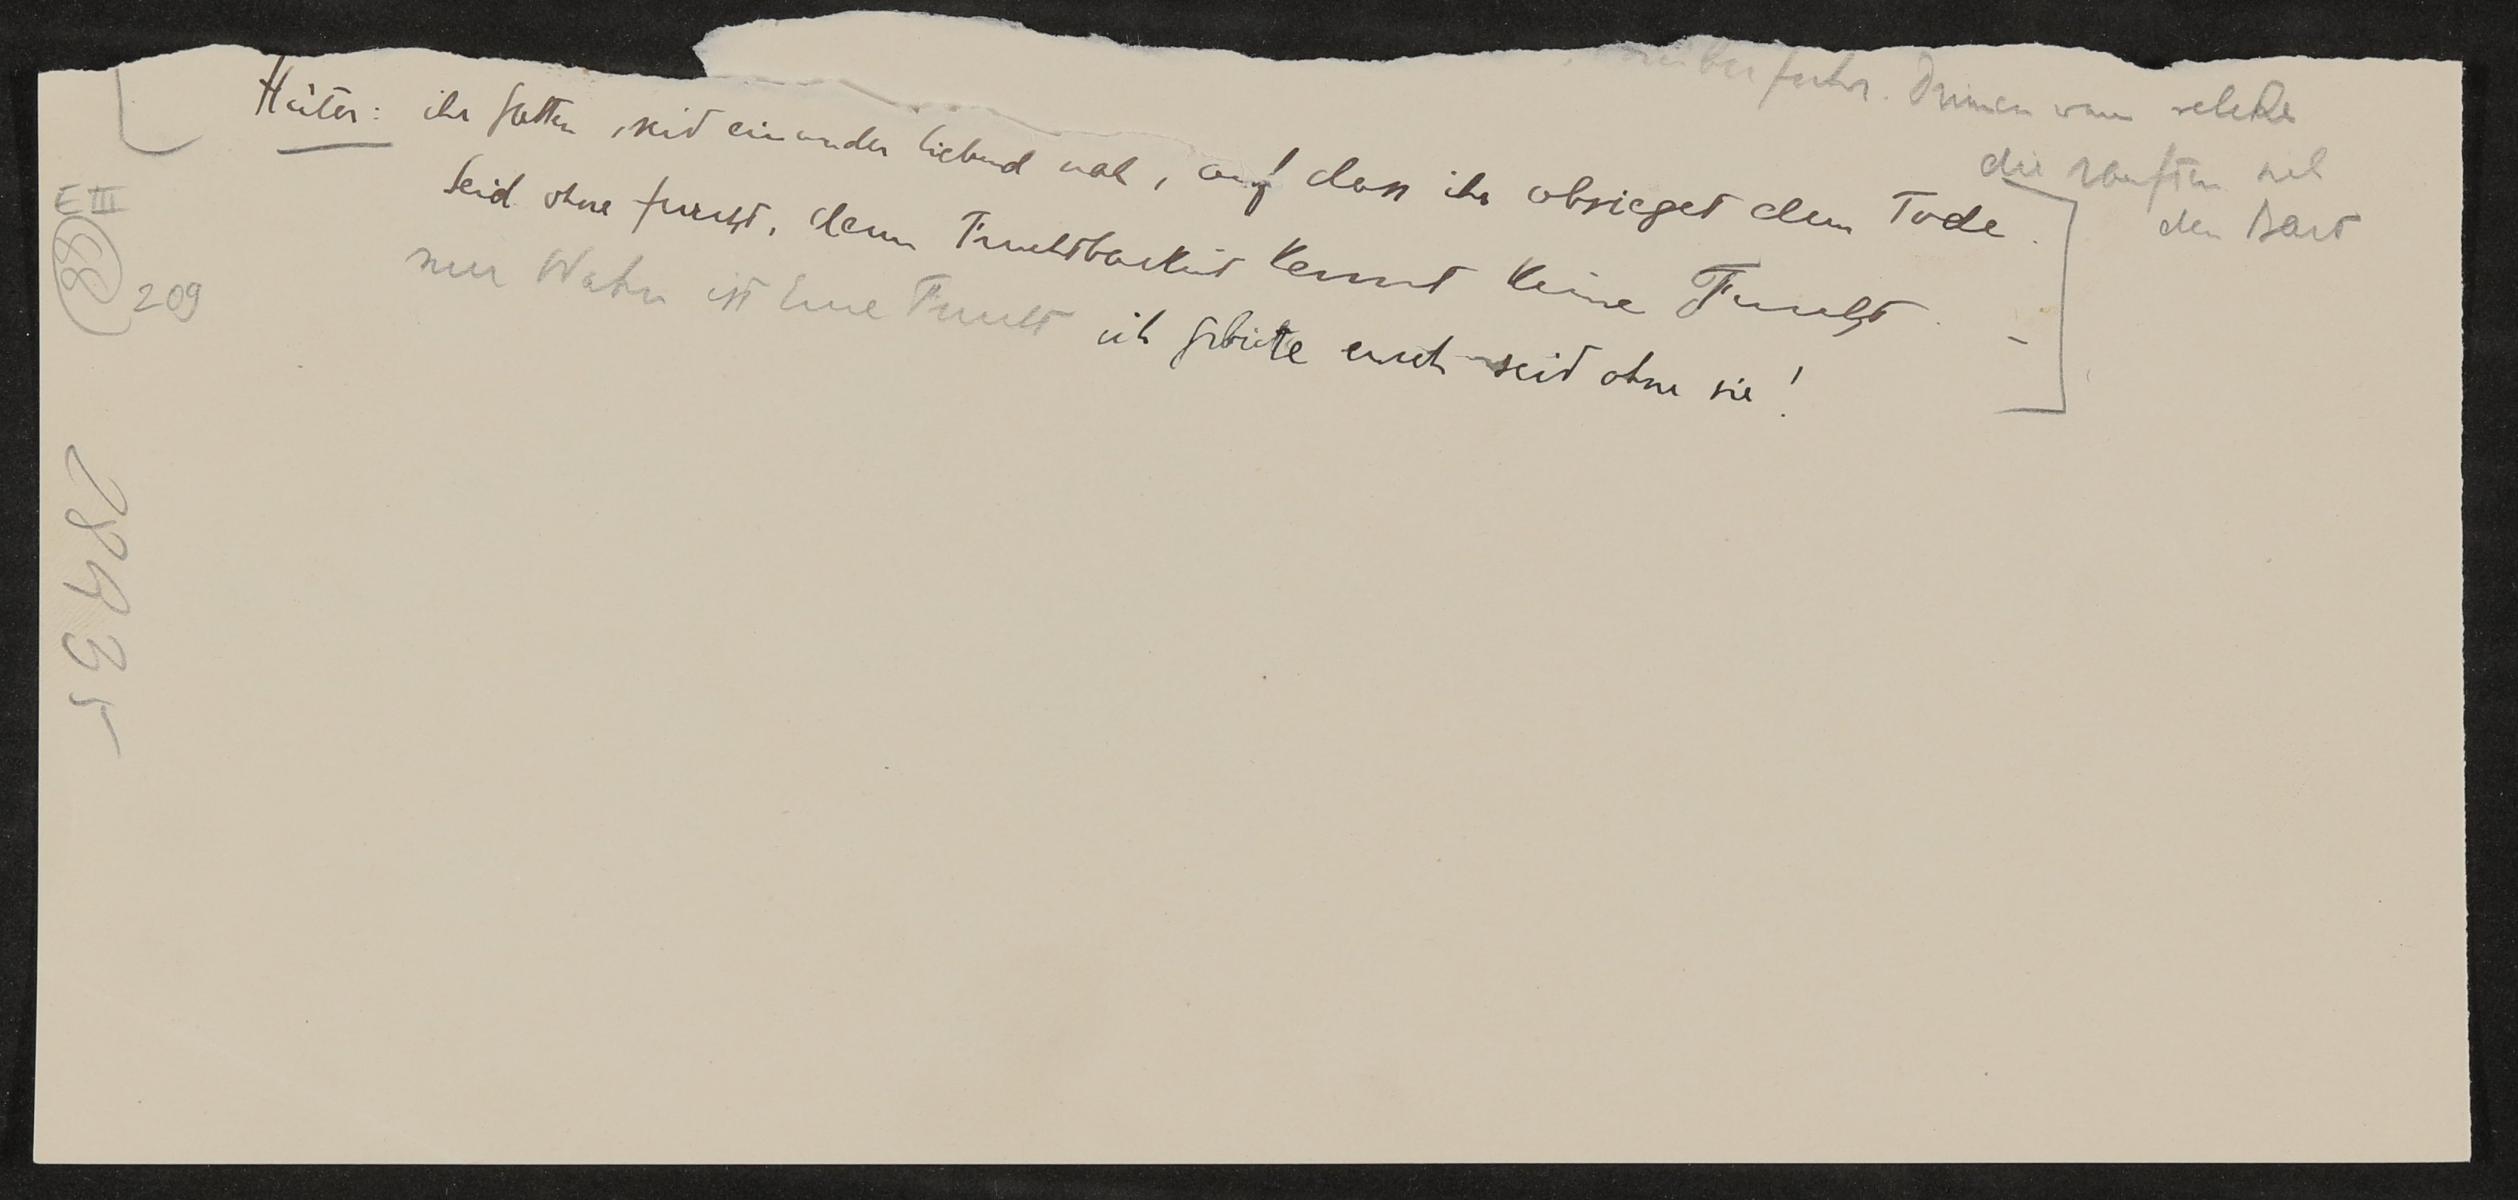 überfuhr. Drinnen waren welche
die rauften sich
den Bart
Hüter: ihr Gatten, seid einander liebend nah, auf dass ihr obsieget dem Tode.
Seid ohne Furcht, denn Fruchtbarkeit kennt keine Furcht.
nur Wahn ist Eure Furcht ich gebiete euch seid ohne sie!
E III
88
209
28435